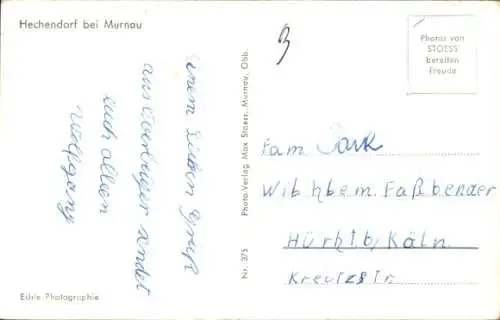 Hechendorf bei Murnau
3
Photos von
STOESS
bereiten
Freude
einen lieben Gruß
aus Oberbayer sendet
euch allen
Wolfgang
Photo-Verlag Max Stoess, Murnau, Obb.
Nr. 375
Fam Park
Wibhbem. Faßbender
Hürhlb, Käln.
Kreuzstr.
Echte Photographie